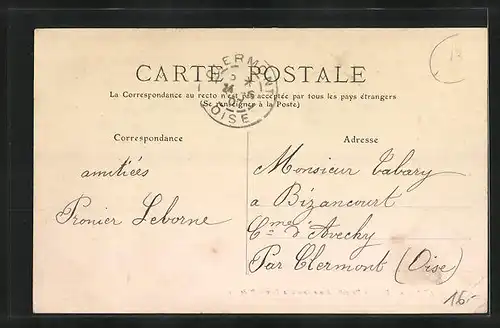 CLERMONT
OISE
CARTE POSTALE
La Correspondance au recto n'est pas acceptée par tous les pays étrangers
(Se renseigner à la Poste)
Correspondance
amitiées
Pronier Leborne
Adresse
Monsieur Tabary
a Bizancourt
Cme d'Avechy
Par Clermont (Oise)